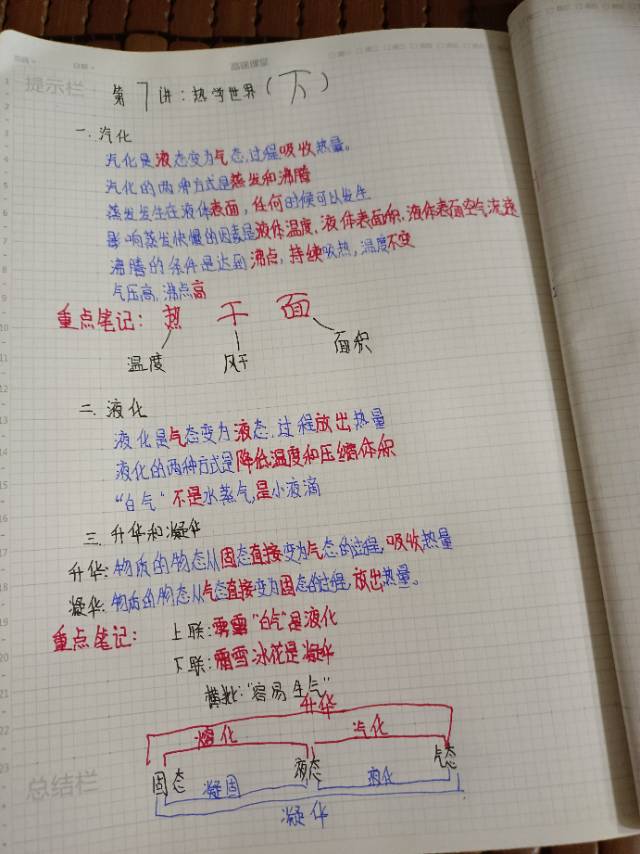 提示栏
第7讲：热学世界（下）
一. 汽化
汽化是液态变为气态，过程吸收热量。
汽化的两种方式是蒸发和沸腾
蒸发发生在液体表面，任何时候可以发生
影响蒸发快慢的因素是液体温度，液体表面积，液体表面空气流速
沸腾的条件是达到沸点，持续吸热，温度不变
气压高，沸点高
重点笔记：热 干 面
温度 风干 面积
二. 液化
液化是气态变为液态，过程放出热量
液化的两种方式是降低温度和压缩体积
“白气”不是水蒸气，是小液滴
三. 升华和凝华
升华：物质的物态从固态直接变为气态的过程，吸收热量
凝华：物质的物态从气态直接变为固态的过程，放出热量。
重点笔记： 上联：雾露“白气”是液化
下联：霜雪冰花是凝华
横批：“容易生气”
升华
熔化 汽化
固态 液态 气态
凝固 液化
凝华
总结栏